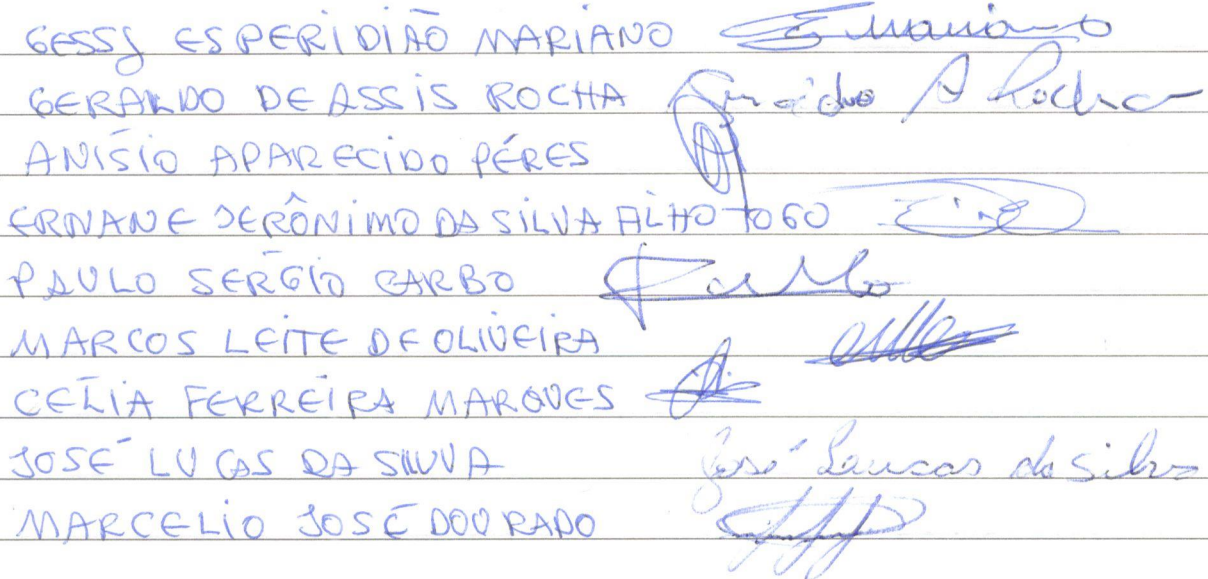 GESSY ESPERIDIÃO MARIANO EMariano
GERALDO DE ASSIS ROCHA Geraldo A Rocha
ANÍSIO APARECIDO PÉRES
ERNANE JERÔNIMO DA SILVA ALHO TOGO
PAULO SÉRGIO GARBO
MARCOS LEITE DE OLIVEIRA
CÉLIA FERREIRA MARQUES
JOSÉ LUCAS DA SILVVA José Laucas da Silva
MARCELIO JOSÉ DOURADO